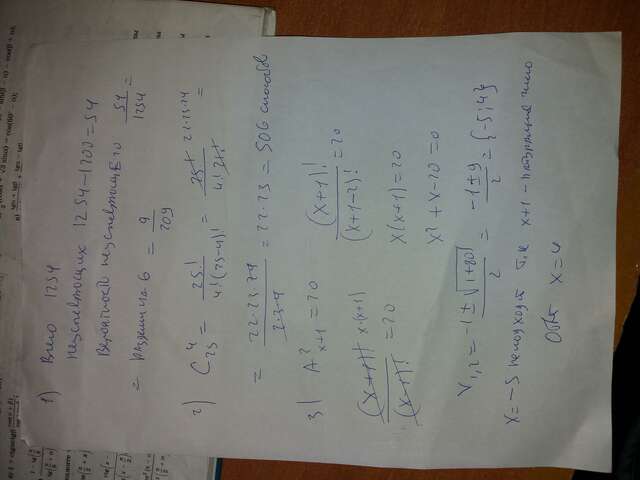 1) Всего 1254
неуспевающих 1254-1200=54
Вероятность неуспевающего 54/1254 =
= разделим на 6 = 9/209
2) C⁴₂₅ = 25!/4!(25-4)! =
= 22·23·24/2·3·4 = 22·23 = 506 способов
3) A²ₓ₊₁=20 (x+1)!/(x+1-2)! =20
(x-1)! x·(x+1)/(x-1)! =20 x(x+1)=20
x²+x-20=0
x₁,₂ = -1±√1+80/2 = -1±9/2 = {-5;4}
x=-5 не подходит т.к x+1 - натуральное число
Ответ x=4